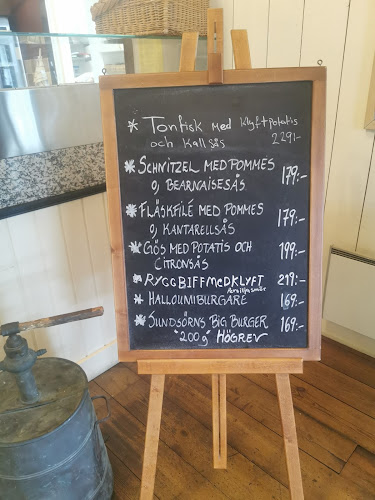 * Tonfisk med klyftpotatis
och kallsås 229:-
* SCHNITZEL MED POMMES
O, BEARNAISESÅS 179:-
* FLÄSKFILÉ MED POMMES
O, KANTARELLSÅS 179:-
* GÖS MED POTATIS OCH
CITRONSÅS 199:-
* RYGGBIFF MED KLYFT 219:-
Persiljesmör
* HALLOUMIBURGARE 169:-
* SUNDSÖRNS BIG BURGER 169:-
"200g" HÖGREV